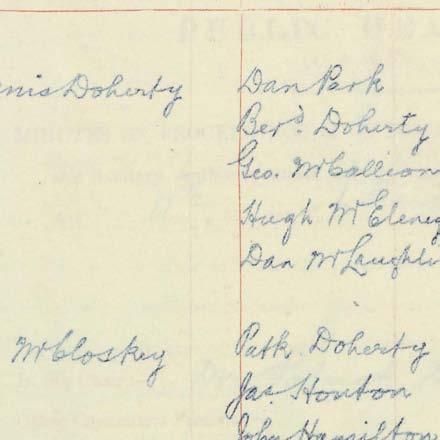 nis Doherty Dan Park
Berd. Doherty
Geo. McCallion
Hugh McEleney
Dan McLaughlin
McCloskey Patk. Doherty
Jas. Houton
John Hamilton